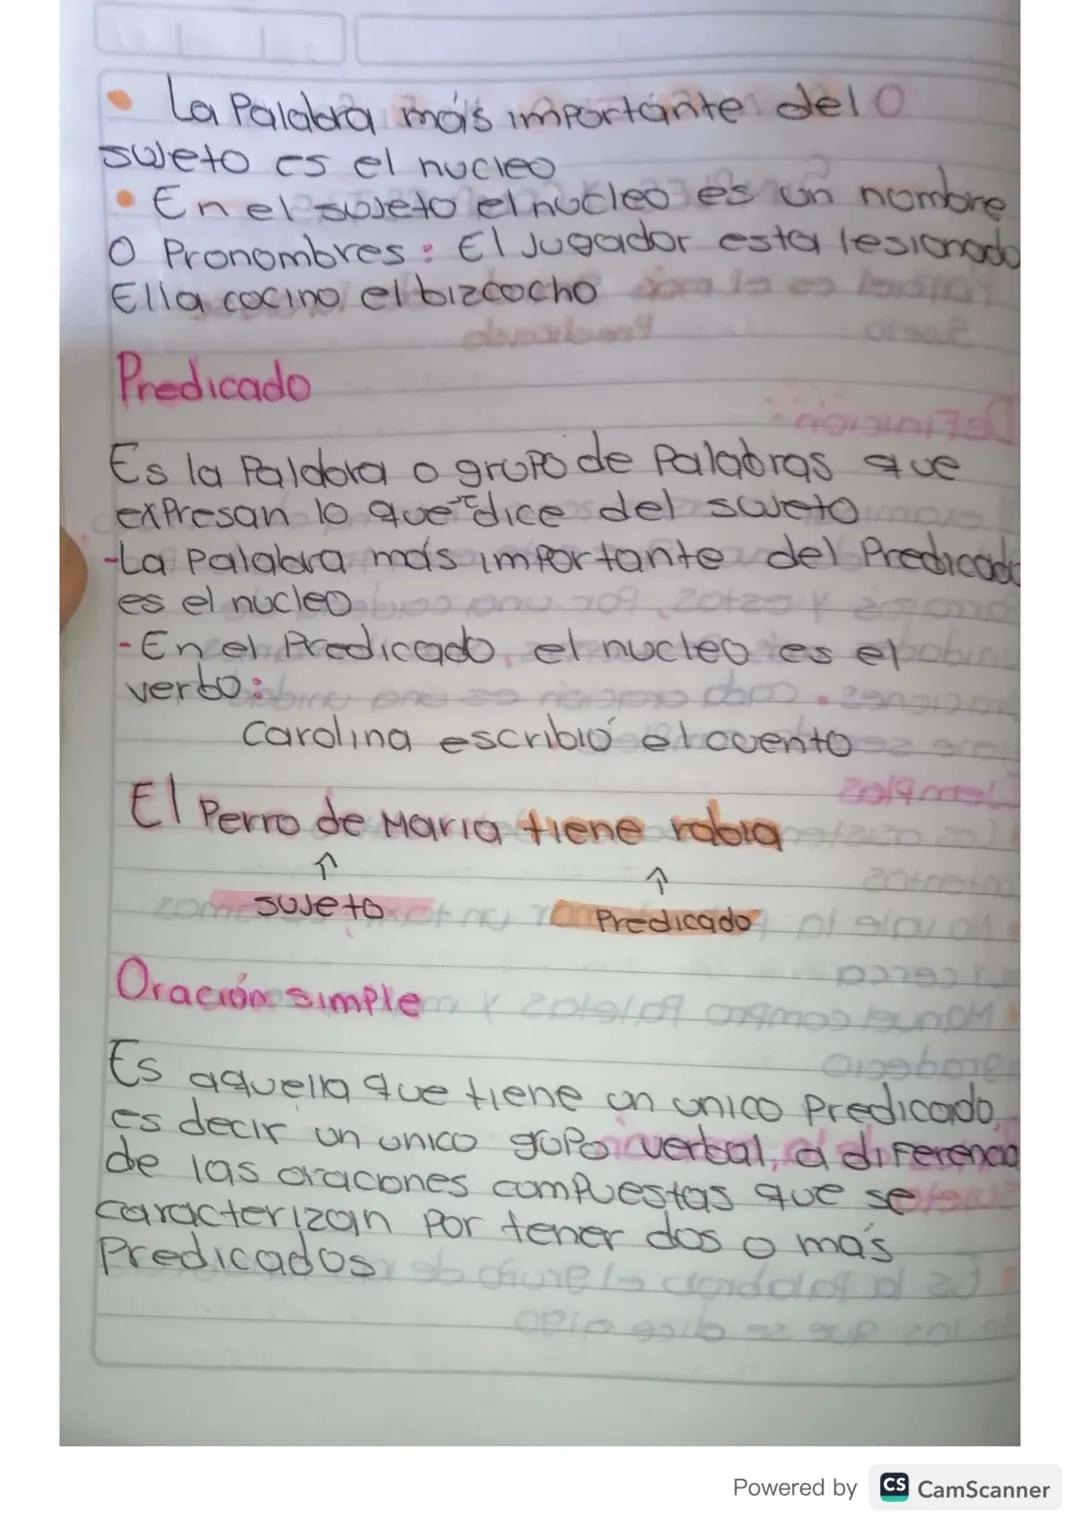 • La Palabra más importante del
sujeto es el nucleo
• En el sujeto el nucleo es un nombre
o Pronombres: El Jugador esta lesionado
Ella cocino el bizcocho
Predicado
Es la Palabra o grupo de Palabras que
expresan lo que se dice del sujeto
-La palabra más importante del Predicado
es el nucleo
-En el Predicado, el nucleo es el
verbo:
Carolina escribió el cuento
El Perro de Maria tiene rabia
↑ ↑
sujeto Predicado
Oración simple
Es aquella que tiene un unico Predicado,
es decir un unico gupo verbal, a diferencia
de las oraciones compuestas que se
caracterizan por tener dos o más
Predicados
Powered by CS CamScanner